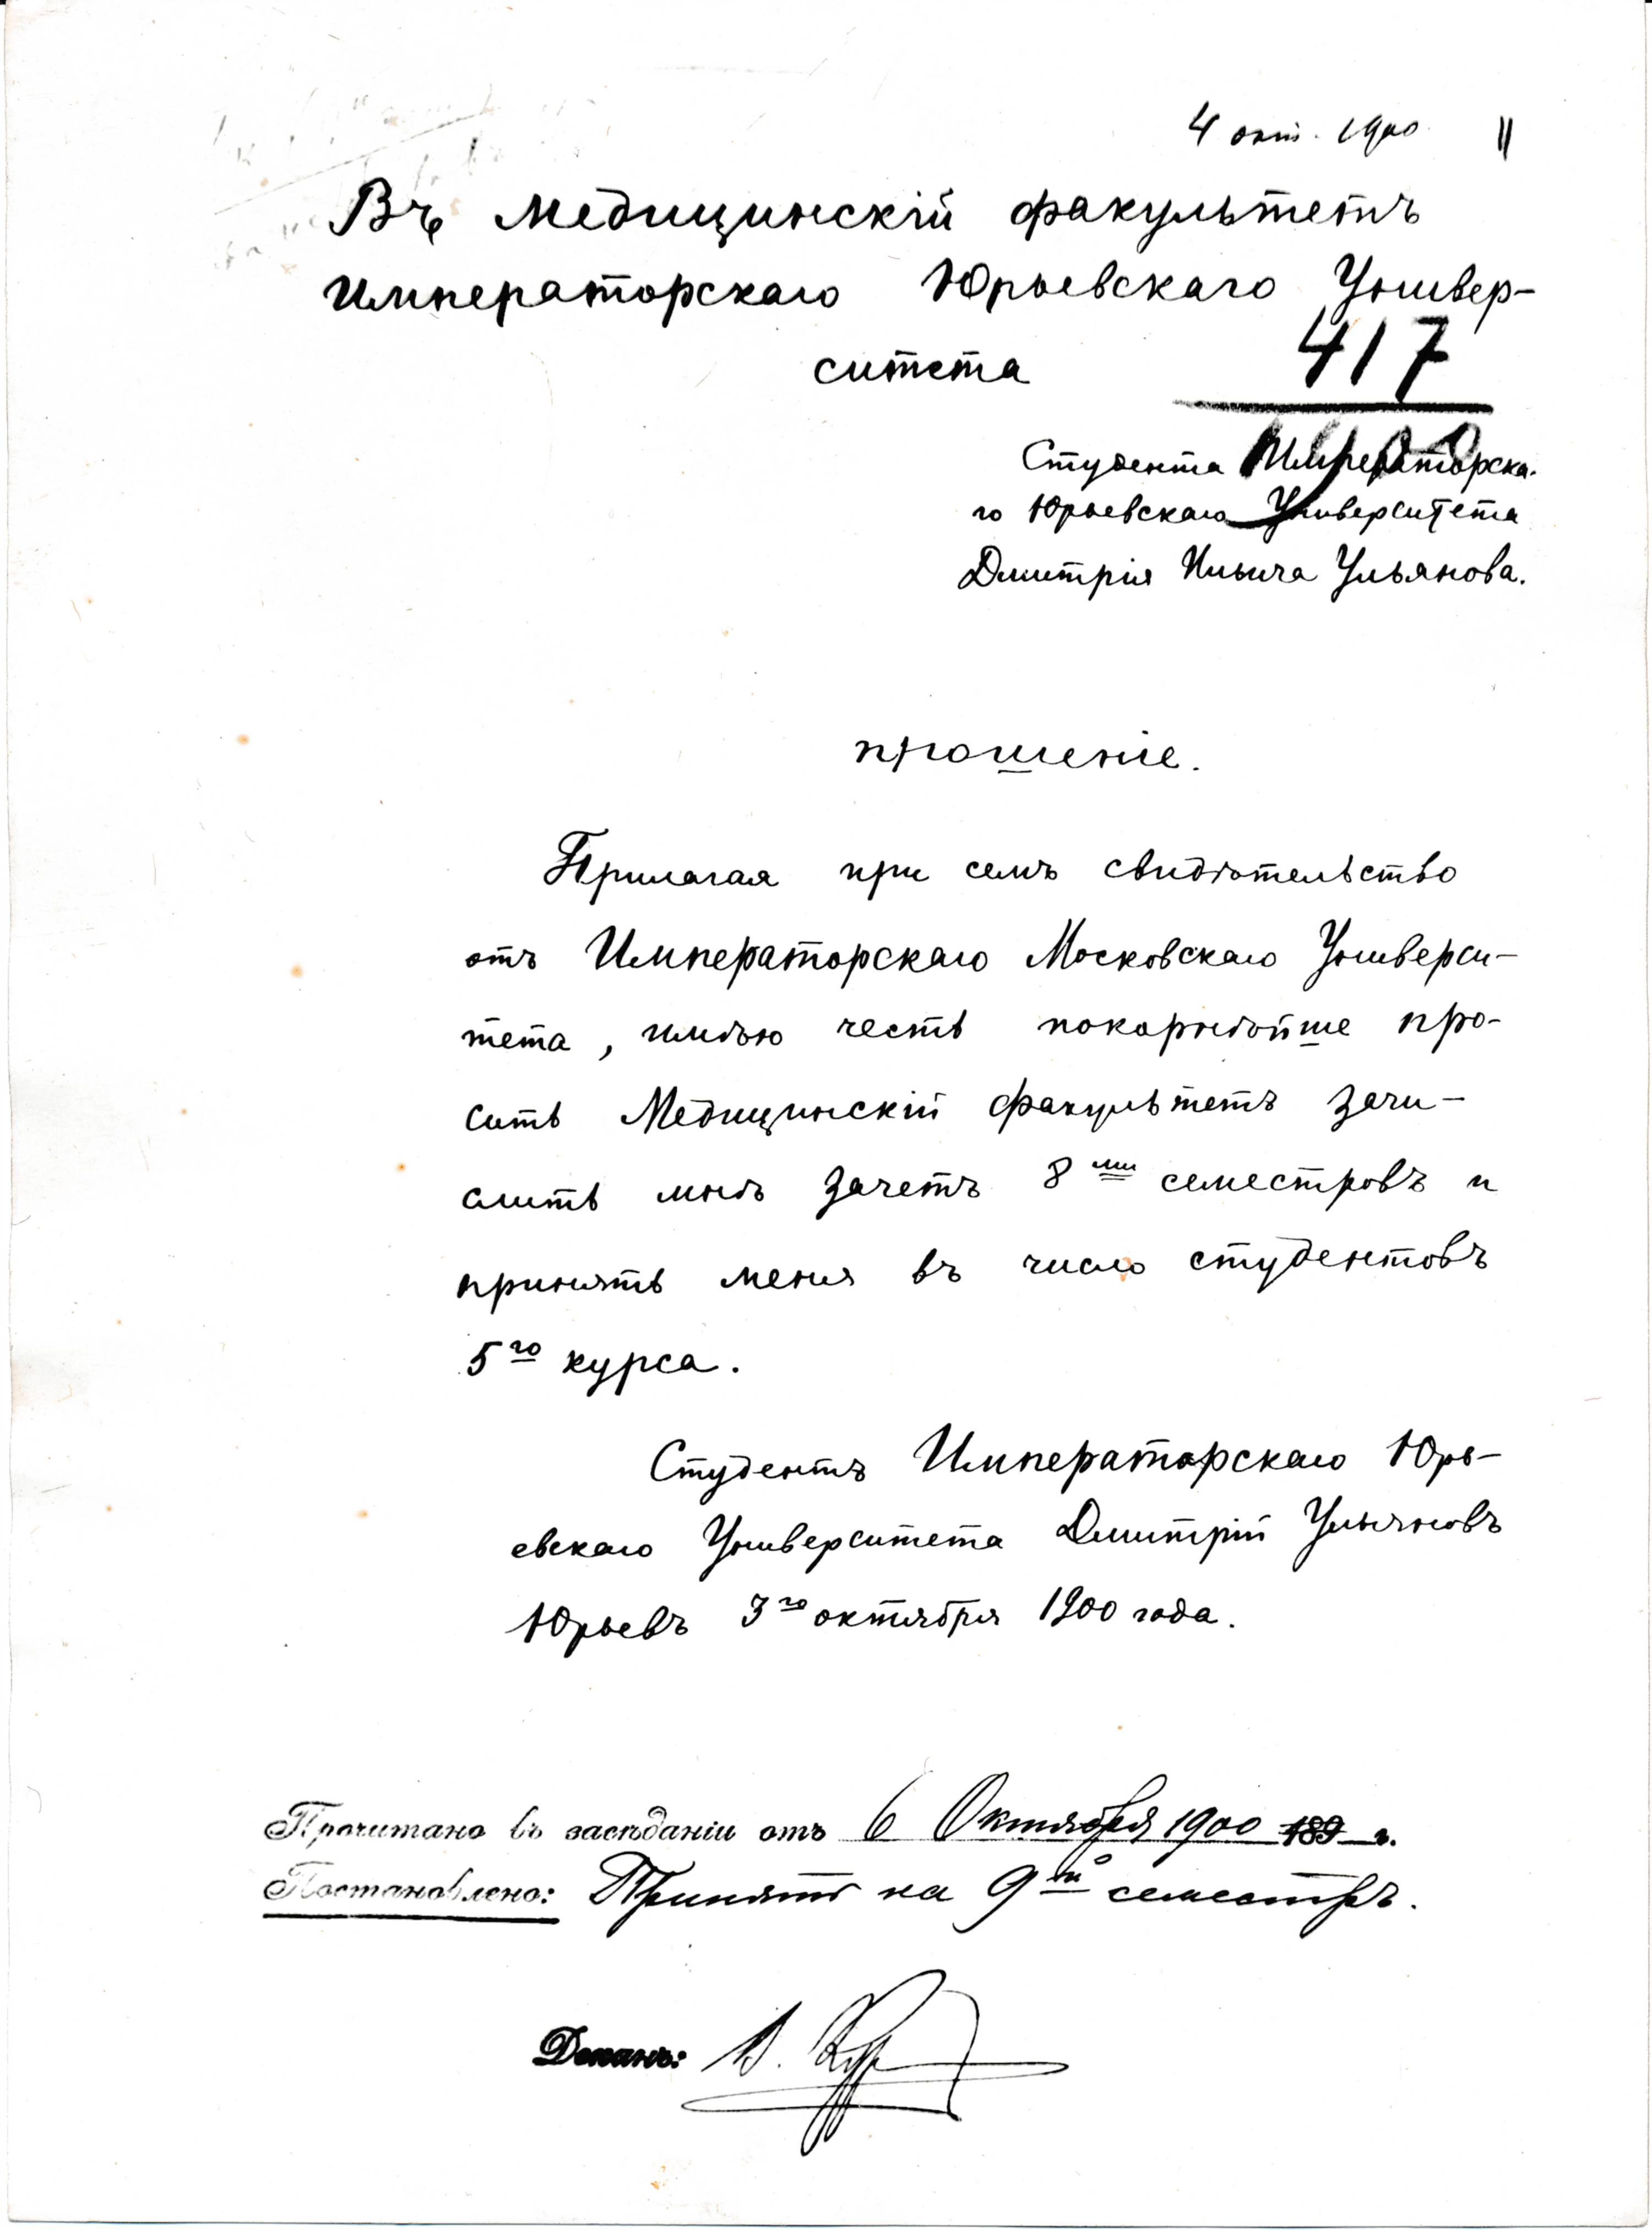 4 окт. 1900 11
Въ Медицинскій факультетъ
Императорскаго Юрьевскаго Универ-
ситета
417
1900
Студента Императорска-
го Юрьевскаго Университета
Дмитрія Ильича Ульянова.
прошеніе.
Прилагая при семъ свидѣтельство
отъ Императорскаго Московскаго Универси-
тета, имѣю честь покорнѣйше про-
сить Медицинскій факультетъ зачи-
слить мнѣ зачетъ 8ми семестровъ и
принять меня въ число студентовъ
5го курса.
Студентъ Императорскаго Юрь-
евскаго Университета Дмитрій Ульяновъ
Юрьевъ 3го октября 1900 года.
Прочитано въ засѣданіи отъ 6 Октября 1900 189 г.
Постановлено: Принять на 9й семестръ.
Деканъ: В.